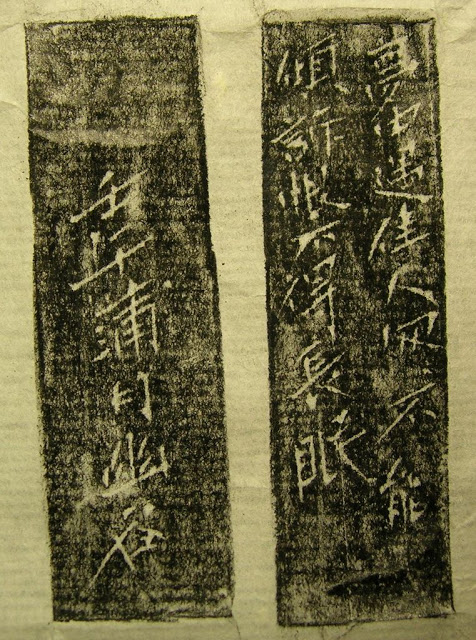 夢中遇佳人不能
傾訴恨不得長眠
壬午蒲月幽谷